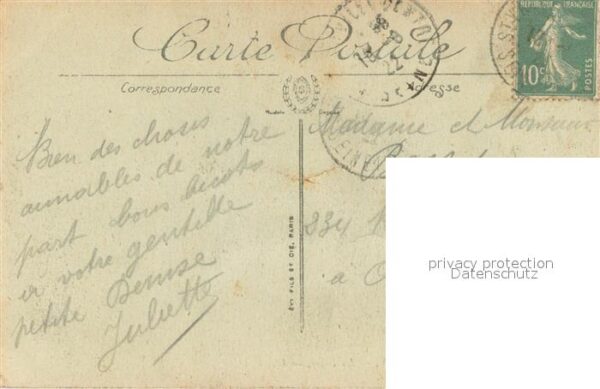 RÉPUBLIQUE FRANÇAISE
10c
POSTES
Carte Postale
Correspondance
Adresse
Modèle Déposé
Bien des choses
aimables de notre
part bons bécots
à votre gentille
petite Denise
Juliette
LÉVY FILS ET CIE, PARIS
Madame et Monsieur
334
à
privacy protection
Datenschutz